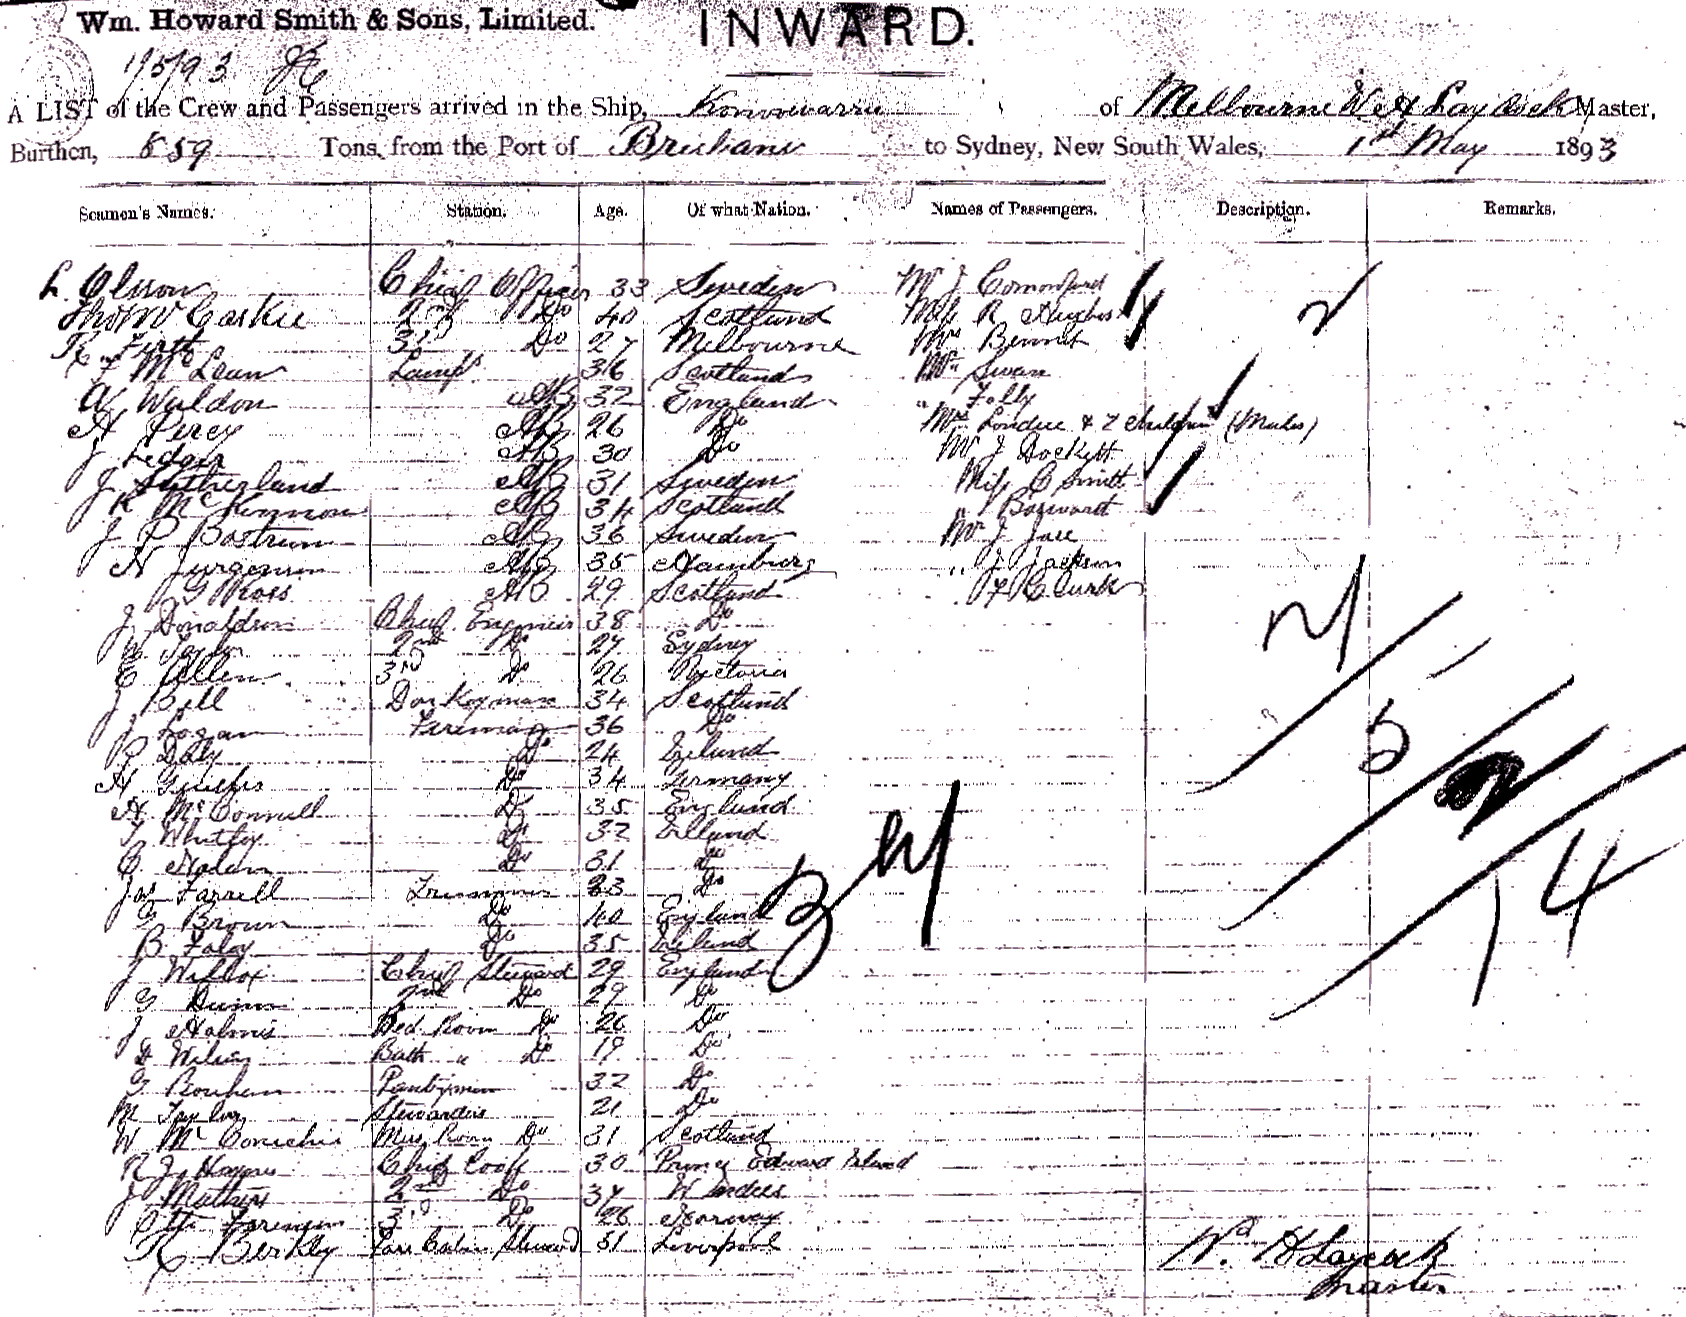 Wm. Howard Smith & Sons, Limited.
INWARD.
1/5/93
A LIST of the Crew and Passengers arrived in the Ship, Konoowarra of Melbourne W H Laycock Master,
Burthen, 859 Tons, from the Port of Brisbane to Sydney, New South Wales, 1st May 1893
Seamen's Names. Station. Age. Of what Nation. Names of Passengers. Description. Remarks.
L. Olsson Chief Officer 33 Sweden Mr J Comonford
Thos Mc Caskie 2nd Do 40 Scotland Miss R Hughes
R Firth 3rd Do 27 Melbourne Mrs Bennet
F McLean Lamps 36 Scotland Swan
W Waldon AB 32 England " Folly
H Percy AB 26 Do Mrs Londue & 2 children (Males)
J Ledger AB 30 Do Mr J Dockett
J Sutherland AB 31 Sweden Miss C Smith
K McKinnon AB 34 Scotland
J P Bostrum AB 36 Sweden Mr J
H Jurgensen AB 35 Hamburg " J Jackson
G Ross AB 29 Scotland " F Clark
J Donaldson Chief Engineer 38 Do
Taylor 2nd Do 27 Sydney
E Allen 3rd Do 26 Victoria
J Bell Donkeyman 34 Scotland
J Logan Fireman 36 Do
P Daly Do 24 Ireland
H Do 34 Germany
H McConnell Do 35 England
T Whitley Do 32 Ireland
C Do 31 Do
Jas Farrell Trimmer 23 Do
G Brown Do 40 England
B Foley Do 35 Ireland
J Wilcox Chief Steward 29 England
G Dunn 2nd Do 29 Do
J Holmes Bed Room Do 26 Do
D Wilson Bath " Do 19 Do
G Bonham Pantryman 32 Do
M Taylor Stewardess 21 Do
W McConechie Mess Room Do 31 Scotland
R J Haynes Chief Cook 30 Prince Edward Island
J Mathers 2nd Do 37 W Indies
Otto 3rd Do 26 Norway
R Berkley Fore Cabin Steward 51 Liverpool
Wm H Laycock
Master